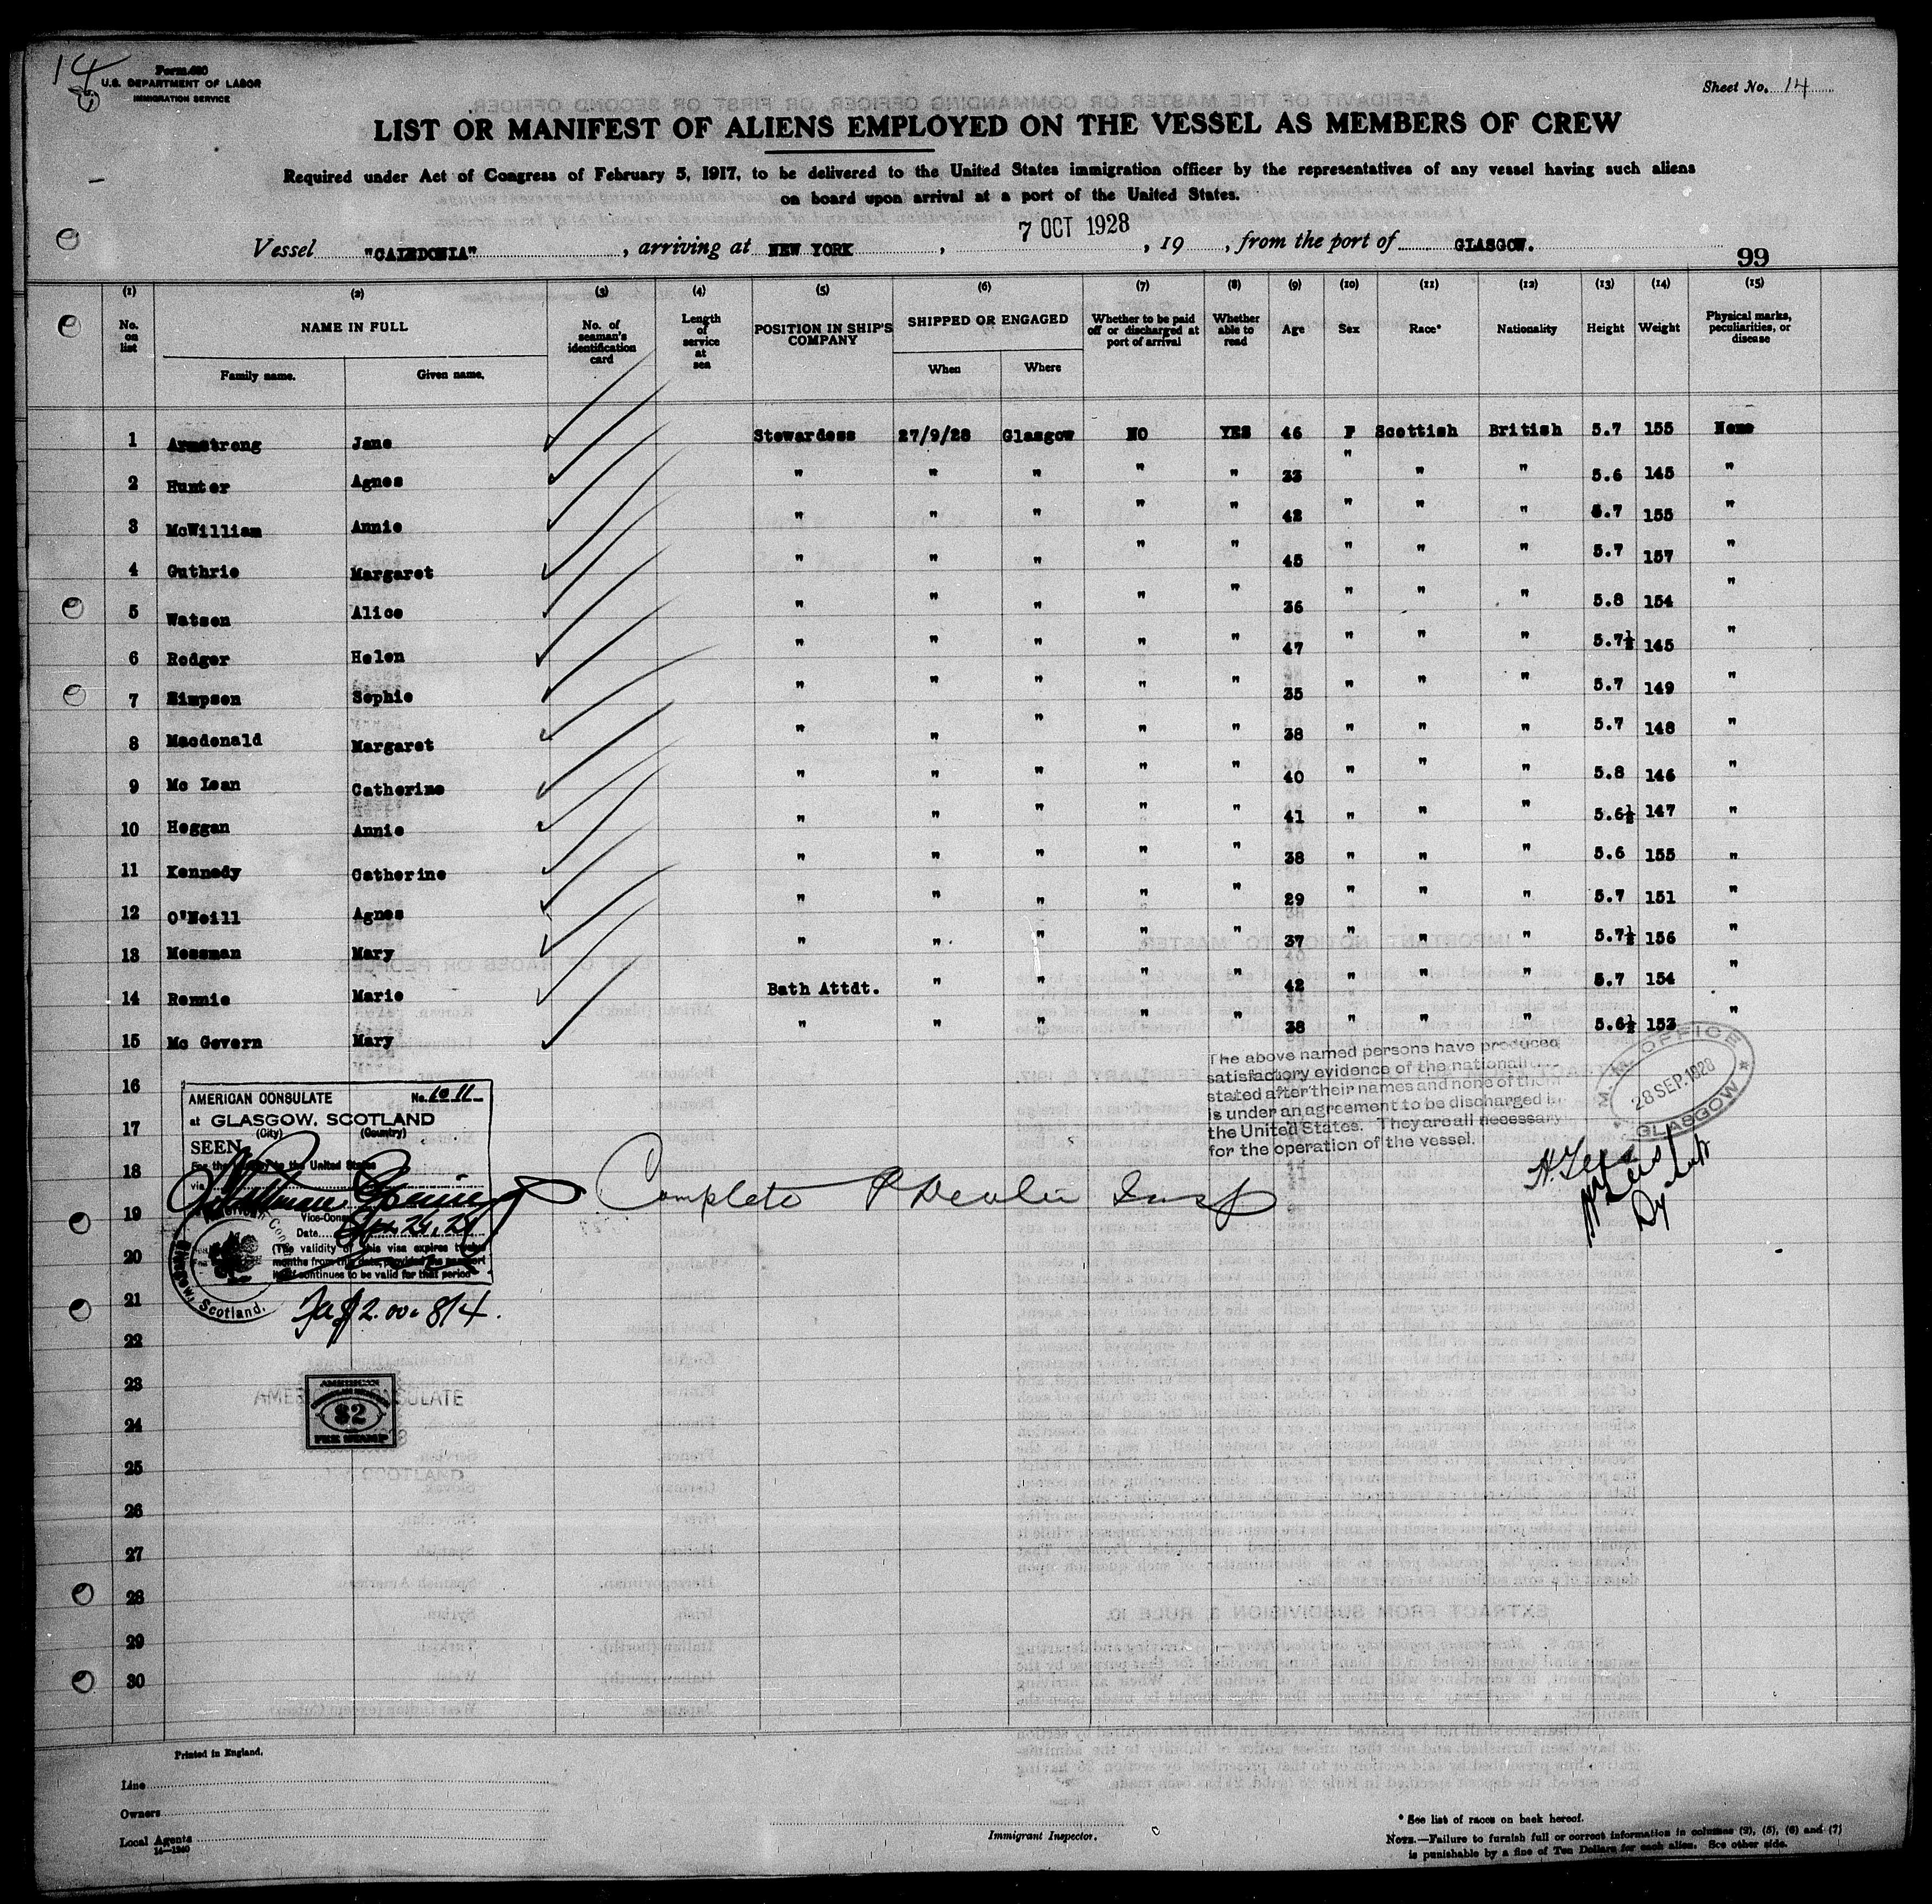 14
Form 680
U.S. DEPARTMENT OF LABOR
IMMIGRATION SERVICE
Sheet No. 14
LIST OR MANIFEST OF ALIENS EMPLOYED ON THE VESSEL AS MEMBERS OF CREW
Required under Act of Congress of February 5, 1917, to be delivered to the United States immigration officer by the representatives of any vessel having such aliens
on board upon arrival at a port of the United States.
Vessel "CALEDONIA", arriving at NEW YORK, 7 OCT 1928, 19, from the port of GLASGOW.
99
(1) (2) (3) (4) (5) (6) (7) (8) (9) (10) (11) (12) (13) (14) (15)
No. on list | NAME IN FULL | No. of seaman's identification card | Length of service at sea | POSITION IN SHIP'S COMPANY | SHIPPED OR ENGAGED | Whether to be paid off or discharged at port of arrival | Whether able to read | Age | Sex | Race* | Nationality | Height | Weight | Physical marks, peculiarities, or disease
Family name. | Given name. | When | Where
1 Armstrong Jane Stewardess 27/9/28 Glasgow NO YES 46 F Scottish British 5.7 155 None
2 Hunter Agnes " " " " " 33 " " " 5.6 145 "
3 McWilliam Annie " " " " " 42 " " " 5.7 155 "
4 Guthrie Margaret " " " " " 45 " " " 5.7 157 "
5 Watson Alice " " " " " 36 " " " 5.8 154 "
6 Rodger Helen " " " " " 47 " " " 5.7½ 145 "
7 Simpson Sophie " " " " " 35 " " " 5.7 149 "
8 Macdonald Margaret " " " " " 38 " " " 5.7 148 "
9 Mc Lean Catherine " " " " " 40 " " " 5.8 146 "
10 Heggan Annie " " " " " 41 " " " 5.6½ 147 "
11 Kennedy Catherine " " " " " 38 " " " 5.6 155 "
12 O'Neill Agnes " " " " " 29 " " " 5.7 151 "
13 Mossman Mary " " " " " 37 " " " 5.7½ 156 "
14 Rennie Marie Bath Attdt. " " " " 42 " " " 5.7 154 "
15 Mc Govern Mary " " " " " 38 " " " 5.6½ 153 "
16
17
18
19
20
21
22
23
24
25
26
27
28
29
30
The above named persons have produced
satisfactory evidence of the nationali
stated after their names and none of them
is under an agreement to be discharged in
the United States. They are all necessary
for the operation of the vessel.
M. M. OFFICE
28 SEP. 1928
GLASGOW
AMERICAN CONSULATE No. 1011
at GLASGOW, SCOTLAND
(City) (Country)
SEEN
For the journey to the United States
via
Vice-Cons
Date
(The validity of this visa expires twelve
months from this date, provided the passport
itself continues to be valid for that period
Glasgow, Scotland.
Complete
$2.00 8/4.
AMERICAN
$2
FEE STAMP
AMERICAN CONSULATE
SCOTLAND
Printed in England.
Line
Owners
Local Agents
14—1240
Immigrant Inspector.
* See list of races on back hereof.
NOTE.—Failure to furnish full or correct information in columns (2), (5), (6) and (7)
is punishable by a fine of Ten Dollars for each alien. See other side.